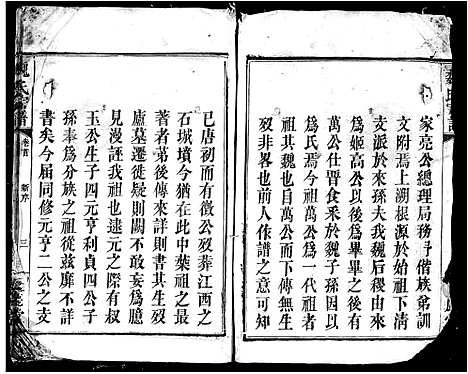 家亮公總理局務予偕族弟訓
文附焉上溯根源於始祖下清
支派於來孫夫我魏后稷由天
為姬高公以後為畢畢之後有
萬公仕晉食釆於魏子孫因以
為氏焉今推萬公為一代祖者
祖其魏也自萬公而下傳無生
歿非畧也前人作譜之可知
魏氏宗譜
卷首
新序
三
已唐初而有徵公歿葬江西之
石城墳今猶在此中葉祖之最
著者弟後傳來詳則書其生歿
廬墓遷徙疑則闕而不敢妄為臆
見漫誣我祖也逮元之際有叔
玉公生子四元亨利貞四公子
孫奉為分族之祖從茲靡不詳
書矣今屆同修元亨二公之支